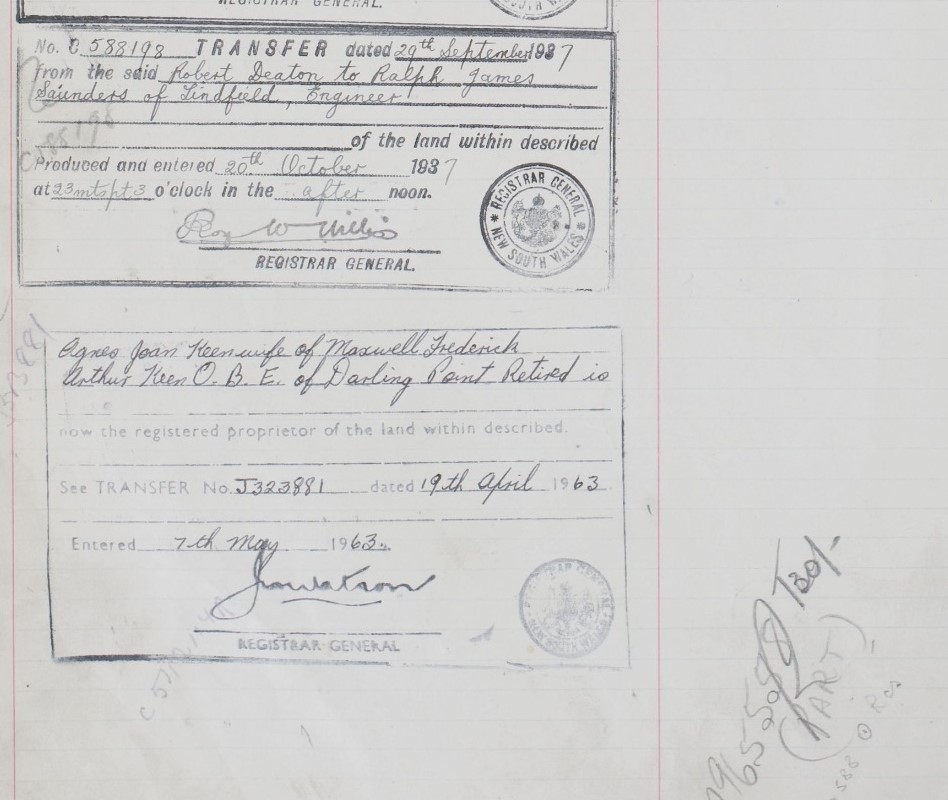 REGISTRAR GENERAL.
No. C 588198 TRANSFER dated 29th September 1937
from the said Robert Deaton to Ralph James
Saunders of Lindfield, Engineer
of the land within described
Produced and entered 20th October 1937
at 23 mts pt 3 o'clock in the after noon.
Roy W Willis
REGISTRAR GENERAL.
REGISTRAR GENERAL
* NEW SOUTH WALES *
C588198
Agnes Joan Keen wife of Maxwell Frederick
Arthur Keen O.B.E. of Darling Point Retired is
now the registered proprietor of the land within described.
See TRANSFER No. J323881 dated 19th April 1963
Entered 7th May 1963.
Jwatson
REGISTRAR GENERAL
REGISTRAR GENERAL
NEW SOUTH WALES
(PART)